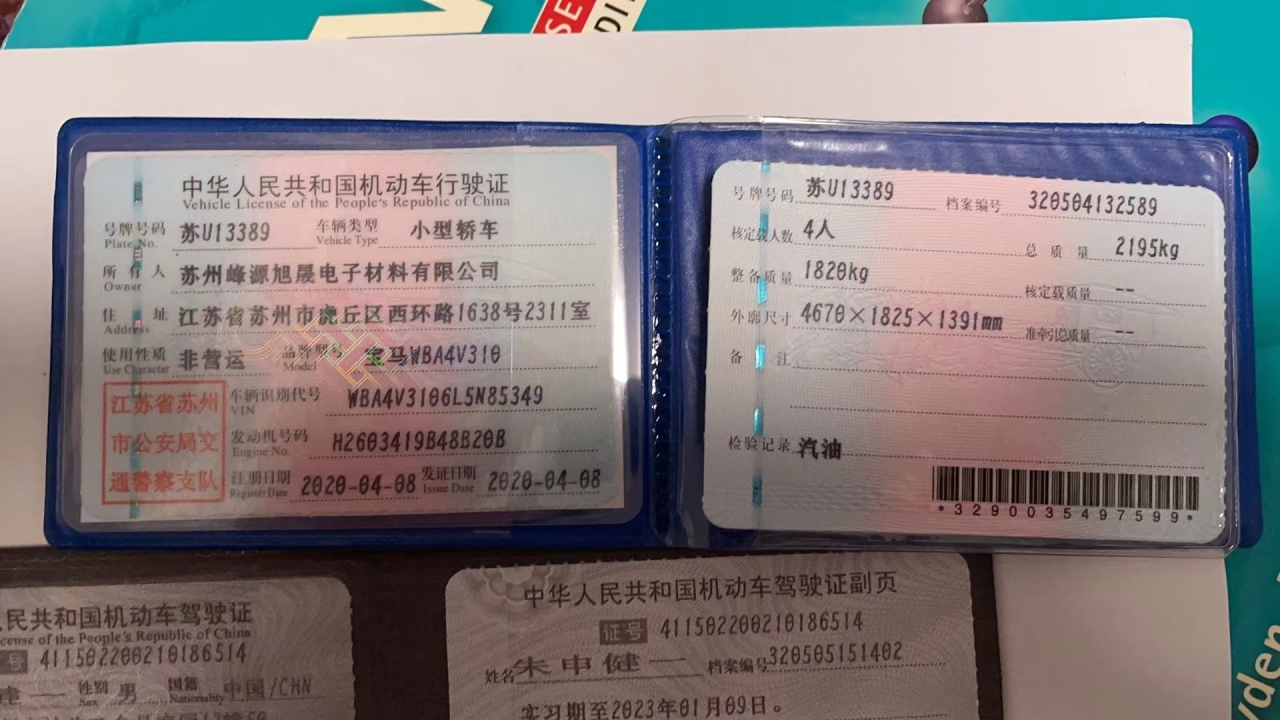 SE
DI
中华人民共和国机动车行驶证
Vehicle License of the People's Republic of China
号牌号码 苏U13389 车辆类型 小型轿车
Plate No. Vehicle Type
所有人 苏州峰源旭晟电子材料有限公司
Owner
住址 江苏省苏州市虎丘区西环路1638号2311室
Address
使用性质 非营运 品牌型号 宝马WBA4V310
Use Character Model
江苏省苏州
市公安局交
通警察支队
车辆识别代号 WBA4V3106L5N85349
VIN
发动机号码 H2603419B48B20B
Engine No.
注册日期 2020-04-08 发证日期 2020-04-08
Register Date Issue Date
号牌号码 苏U13389 档案编号 320504132589
核定载人数 4人 总质量 2195kg
整备质量 1820kg 核定载质量 --
外廓尺寸 4670×1825×1391mm 准牵引总质量 --
备注
检验记录 汽油
*3290035497599*
民共和国机动车驾驶证
cense of the People's Republic of China
号 411502200210186514
性别 男 国籍 中国/CHN
Sex Nationality
中华人民共和国机动车驾驶证副页
证号 411502200210186514
姓名 朱申健一 档案编号 320505151402
实习期至2023年01月09日。
yden